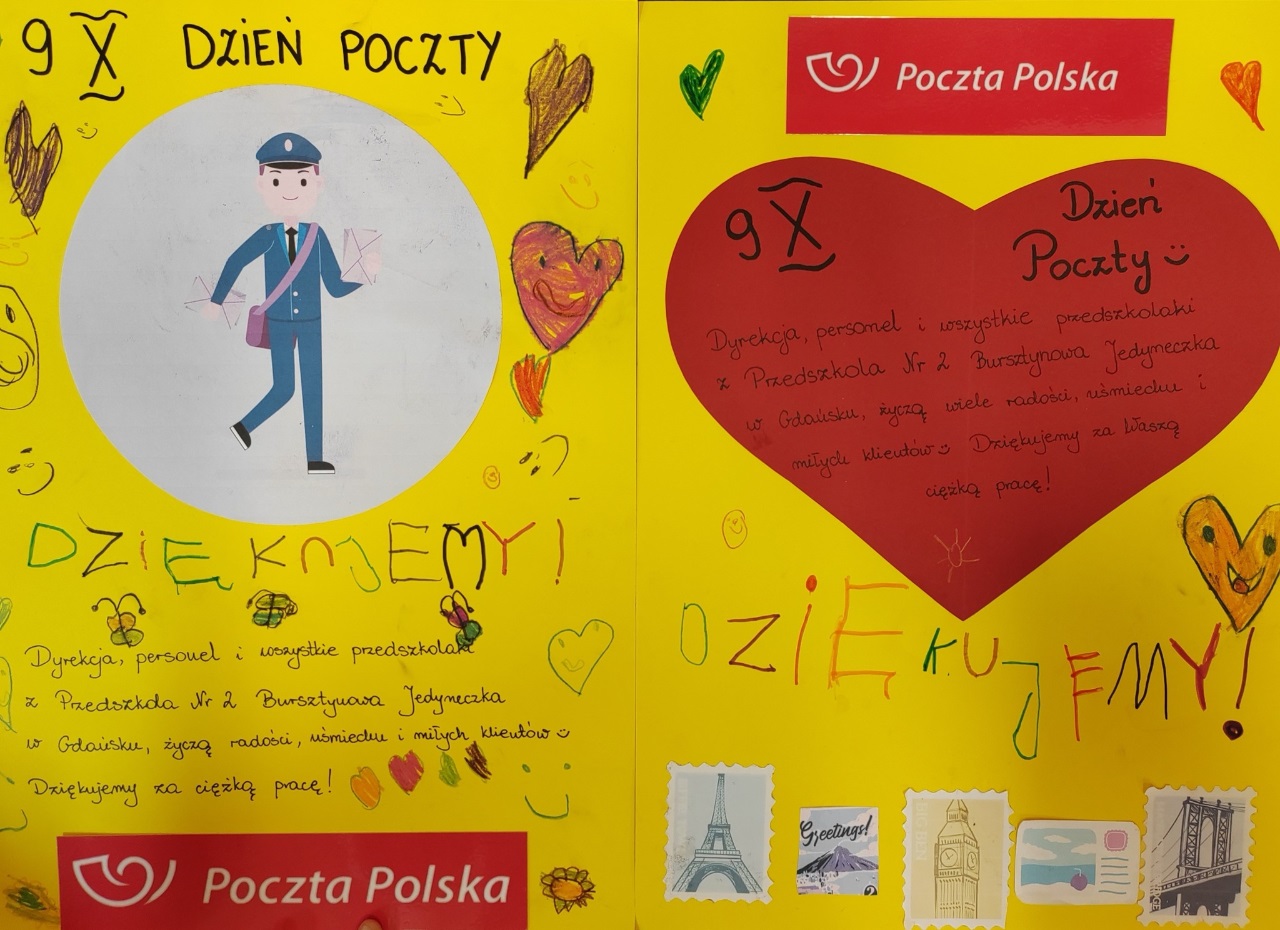 9 X DZIEŃ POCZTY
DZIĘKUJEMY!
Dyrekcja, personel i wszystkie przedszkolaki
z Przedszkola Nr 2 Bursztynowa Jedyneczka
w Gdańsku, życzą radości, uśmiechu i miłych klientów
Dziękujemy za ciężką pracę!
Poczta Polska
Poczta Polska
9 X
Dzień
Poczty
Dyrekcja, personel i wszystkie przedszkolaki
z Przedszkola Nr 2 Bursztynowa Jedyneczka
w Gdańsku, życzą wiele radości, uśmiechu i
miłych klientów Dziękujemy za Waszą
ciężką pracę!
DZIĘKUJEMY!
Greetings!